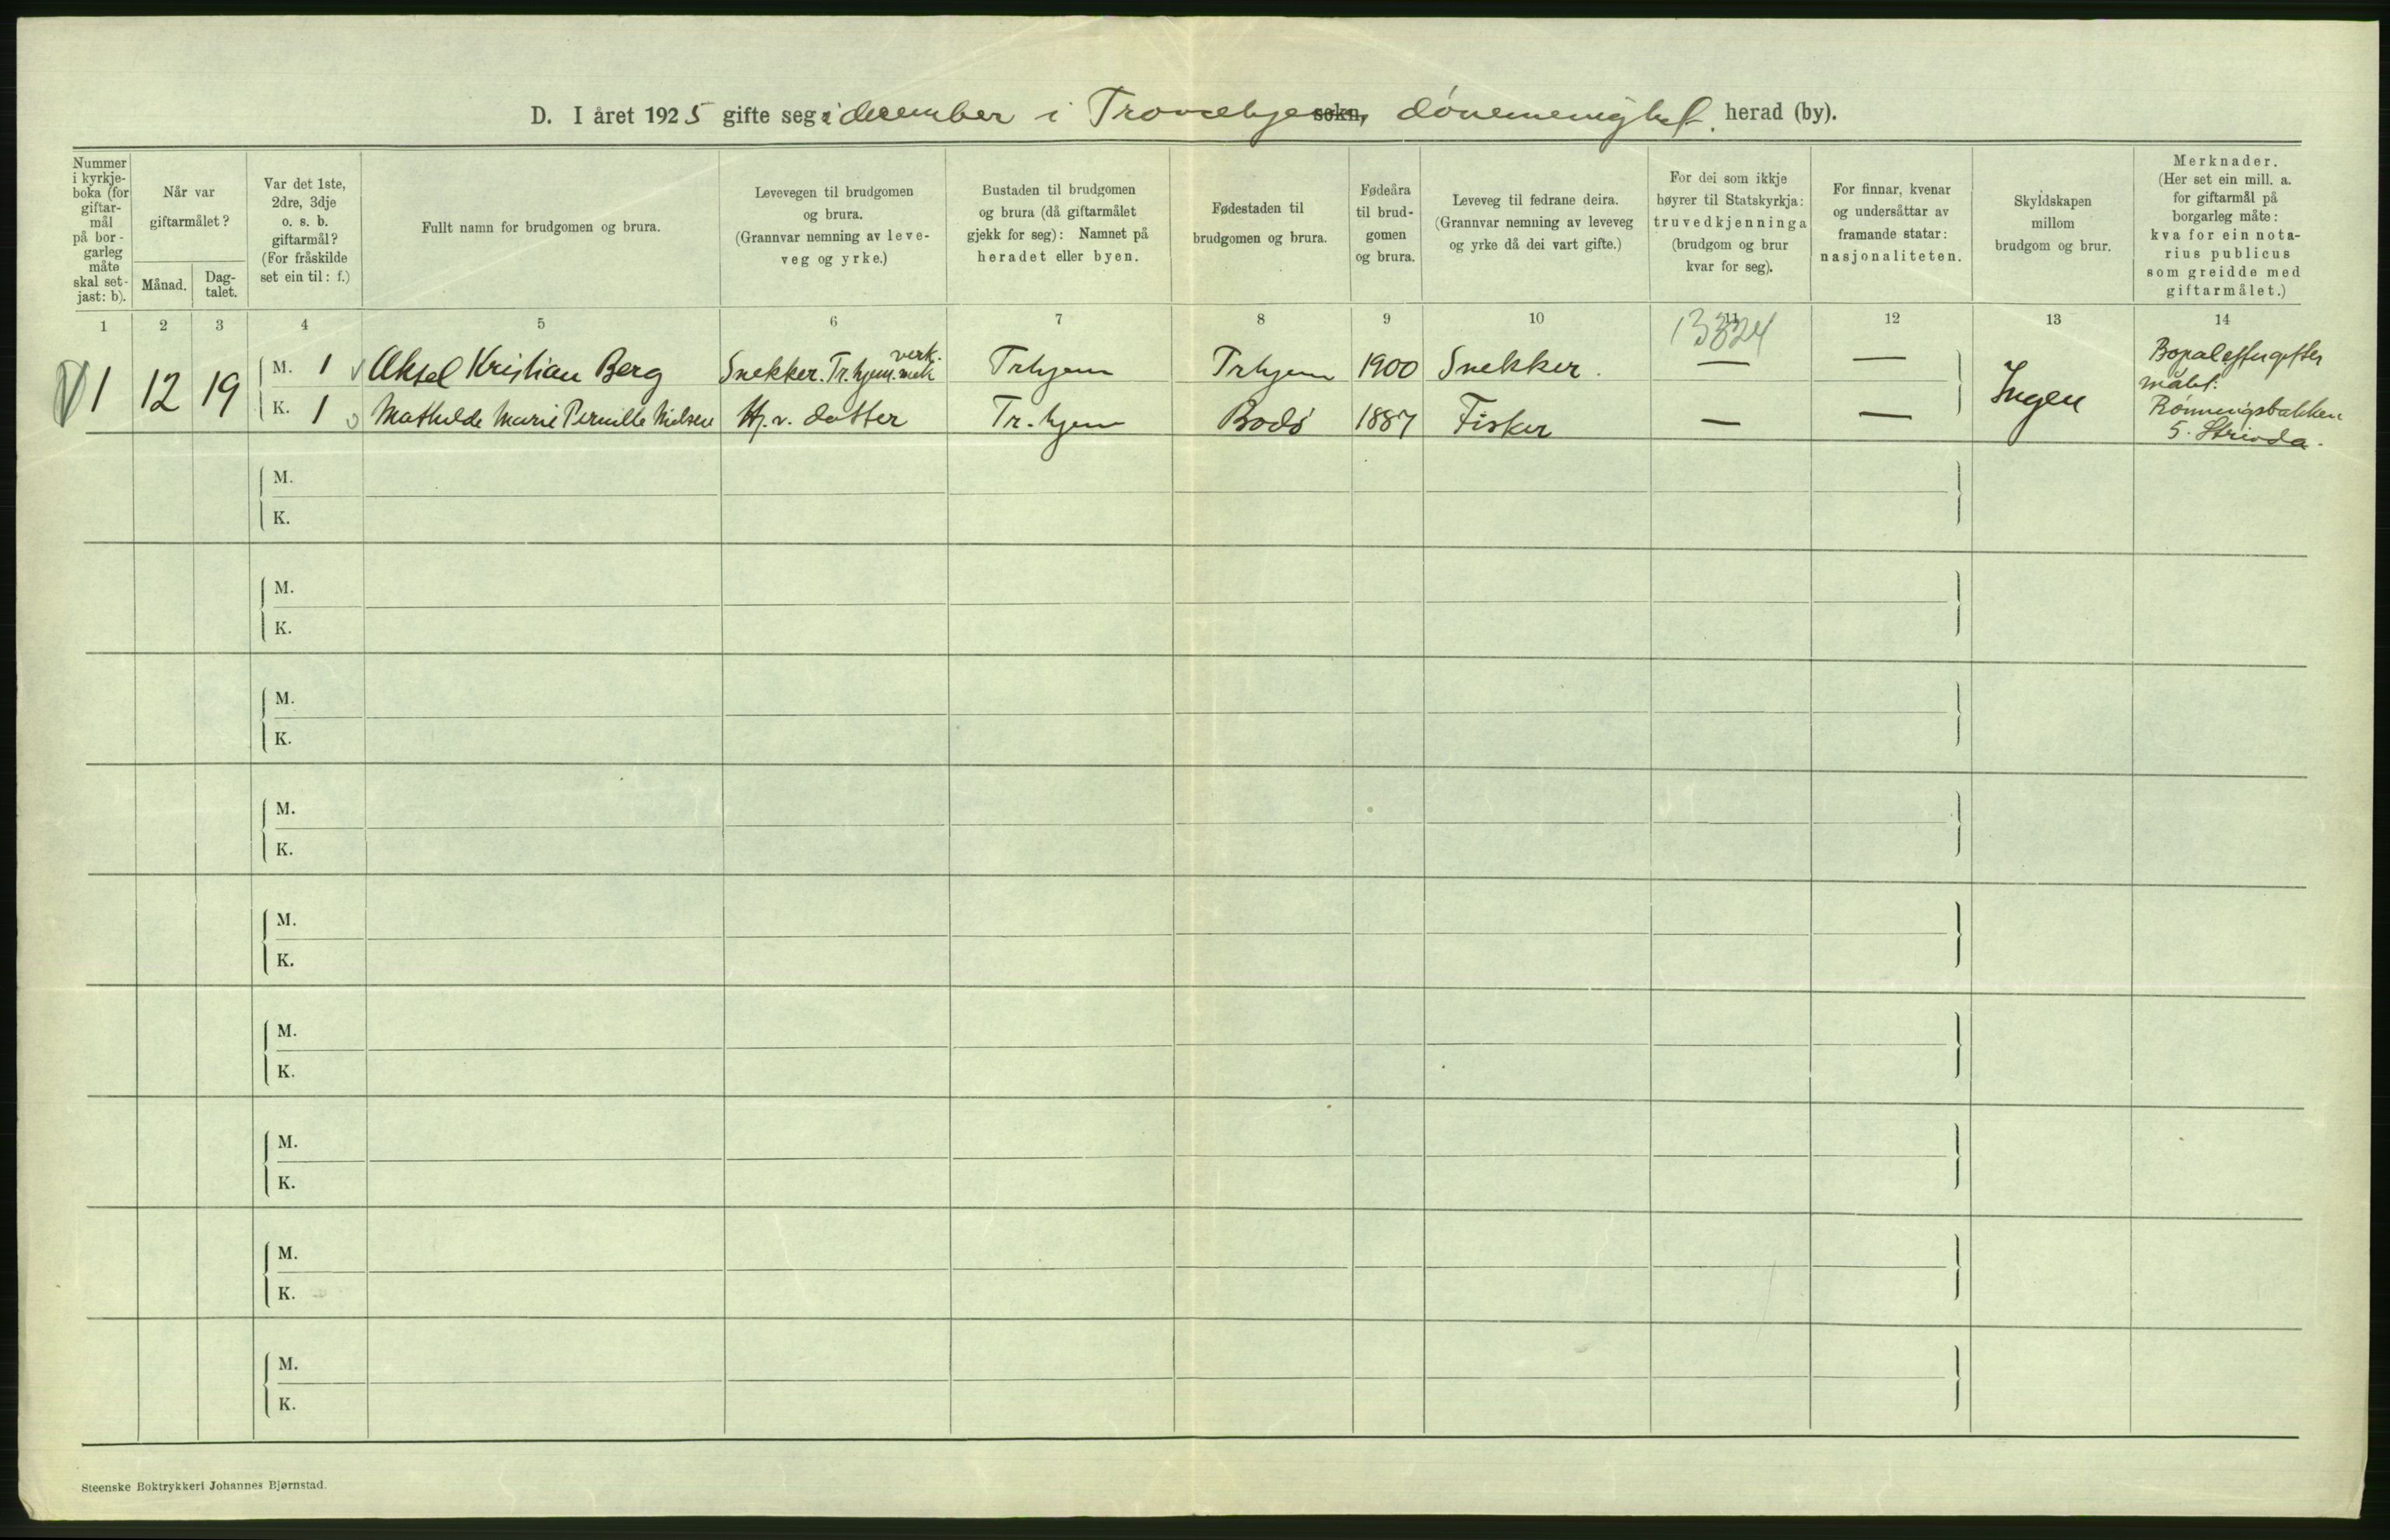 D. I året 1925 gifte seg i december i Trondhjem sokn, døvemenighet. herad (by).
Nummer i kyrkje-boka (for giftar-mål på bor-garleg måte skal set-jast: b).
Når var giftarmålet?
Månad.
Dag-talet.
Var det 1ste, 2dre, 3dje o. s. b. giftarmål? (For fråskilde set ein til: f.)
Fullt namn for brudgomen og brura.
Levevegen til brudgomen og brura. (Grannvar nemning av leve-veg og yrke.)
Bustaden til brudgomen og brura (då giftarmålet gjekk for seg): Namnet på heradet eller byen.
Fødestaden til brudgomen og brura.
Fødeåra til brud-gomen og brura.
Leveveg til fedrane deira. (Grannvar nemning av leveveg og yrke då dei vart gifte.)
For dei som ikkje høyrer til Statskyrkja: truvedkjenninga (brudgom og brur kvar for seg).
For finnar, kvenar og undersåttar av framande statar: nasjonaliteten.
Skyldskapen millom brudgom og brur.
Merknader. (Her set ein mill. a. for giftarmål på borgarleg måte: kva for ein nota-rius publicus som greidde med giftarmålet.)
1 2 3 4 5 6 7 8 9 10 11 12 13 14
13324
1 12 19
M. 1 Aksel Kristian Berg Snekker. Tr.hjem. mek verk. Trhjem Trhjem 1900 Snekker. — —
K. 1 Mathilde Marie Pernille Nielsen Hj. v. datter Tr.hjem Bodø 1887 Fisker — —
Ingen
Bopal efter gifter
målet:
Rønningsbakken
5. Strinda.
M.
K.
M.
K.
M.
K.
M.
K.
M.
K.
M.
K.
M.
K.
M.
K.
M.
K.
Steenske Boktrykkeri Johannes Bjørnstad.